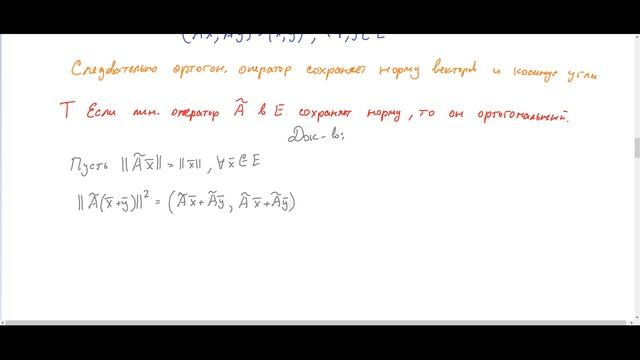 (Ãx, Ãy) = (x, y), ∀ x, y ∈ E
Следовательно ортогон. оператор сохраняет норму векторов и косинус угла
Т Если лин. оператор Ã в E сохраняет норму, то он ортогональный.
Док-во:
Пусть ||Ãx̄|| = ||x̄||, ∀x̄ ∈ E
||Ã(x̄+ȳ)||² = (Ãx̄+Ãȳ, Ãx̄+Ãȳ)